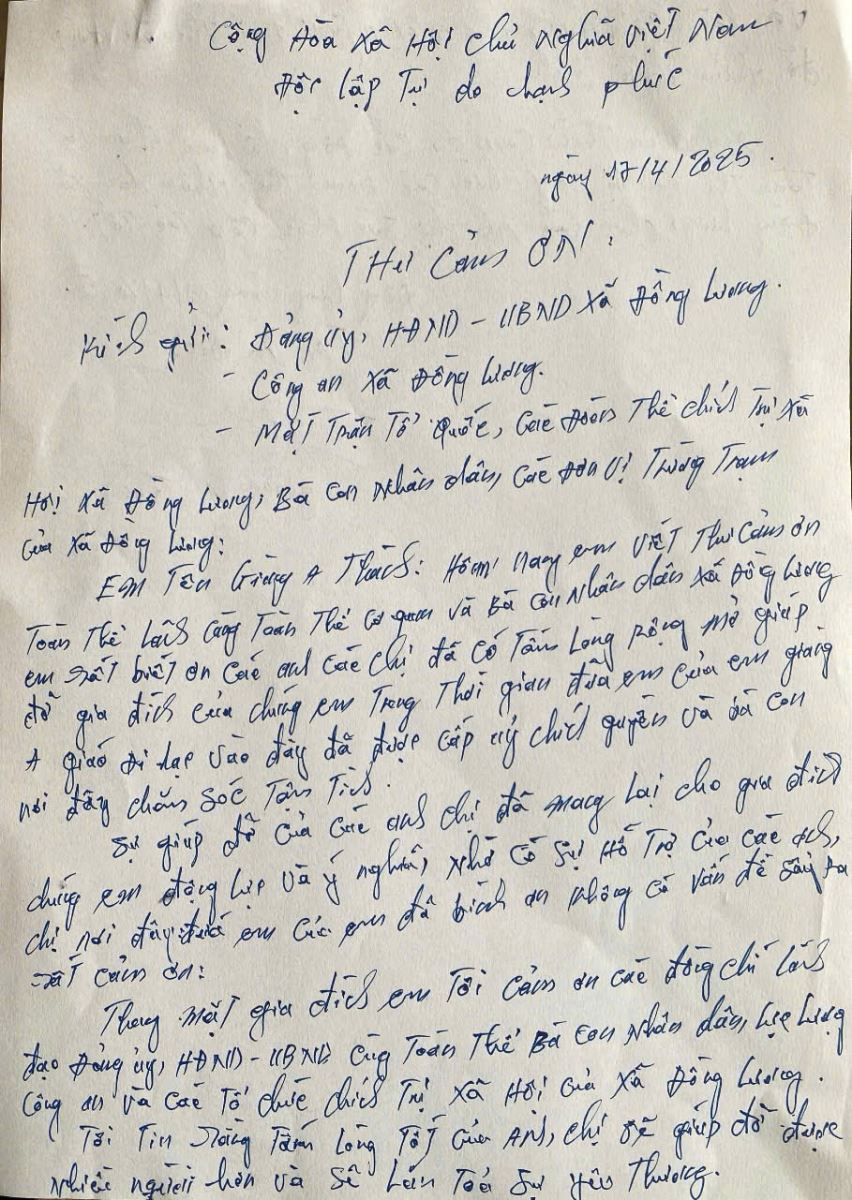 Cộng Hòa Xã Hội chủ nghĩa Việt Nam
Độc lập Tự do hạnh phúc
ngày 17/4/2025.
THư Cảm ƠN:
Kính gửi: Đảng ủy, HĐND - UBND xã Đồng Lương.
- Công an xã Đồng Lương.
- Mặt Trận Tổ Quốc, Các Đoàn Thể chính Trị xã
Hội xã Đồng Lương, Bà con nhân dân, Các đơn vị Trường Trạm
Của xã Đồng Lương:
Em Tên Giàng A Thành: Hôm nay em viết Thư Cảm ơn
Toàn Thể lãnh cùng Toàn Thể cơ quan và Bà con nhân dân xã Đồng Lương
em rất biết ơn các anh các chị đã có Tấm lòng rộng mở giúp
đỡ gia đình của chúng em Trong Thời gian đứa em của em giàng
A giáo đi lạc vào đây đã được cấp uỷ chính quyền và bà con
nơi đây chăm sóc Tận Tình.
Sự giúp đỡ của các anh chị đã mang lại cho gia đình
chúng em động lực và ý nghĩa, nhờ có sự Hỗ Trợ của các anh,
chị nơi đây đứa em của em đã bình an không có vấn đề sảy ra
rất cảm ơn:
Thay mặt gia đình em Tôi cảm ơn các đồng chí lãnh
đạo Đảng ủy, HĐND - UBND cùng Toàn Thể Bà con nhân dân, lực lượng
Công an và các Tổ chức chính Trị xã Hội của xã Đồng Lương.
Tôi Tin rằng Tấm lòng Tốt của Anh, chị sẽ giúp đỡ được
nhiều người hơn và sẽ lan Toả sự yêu Thương.